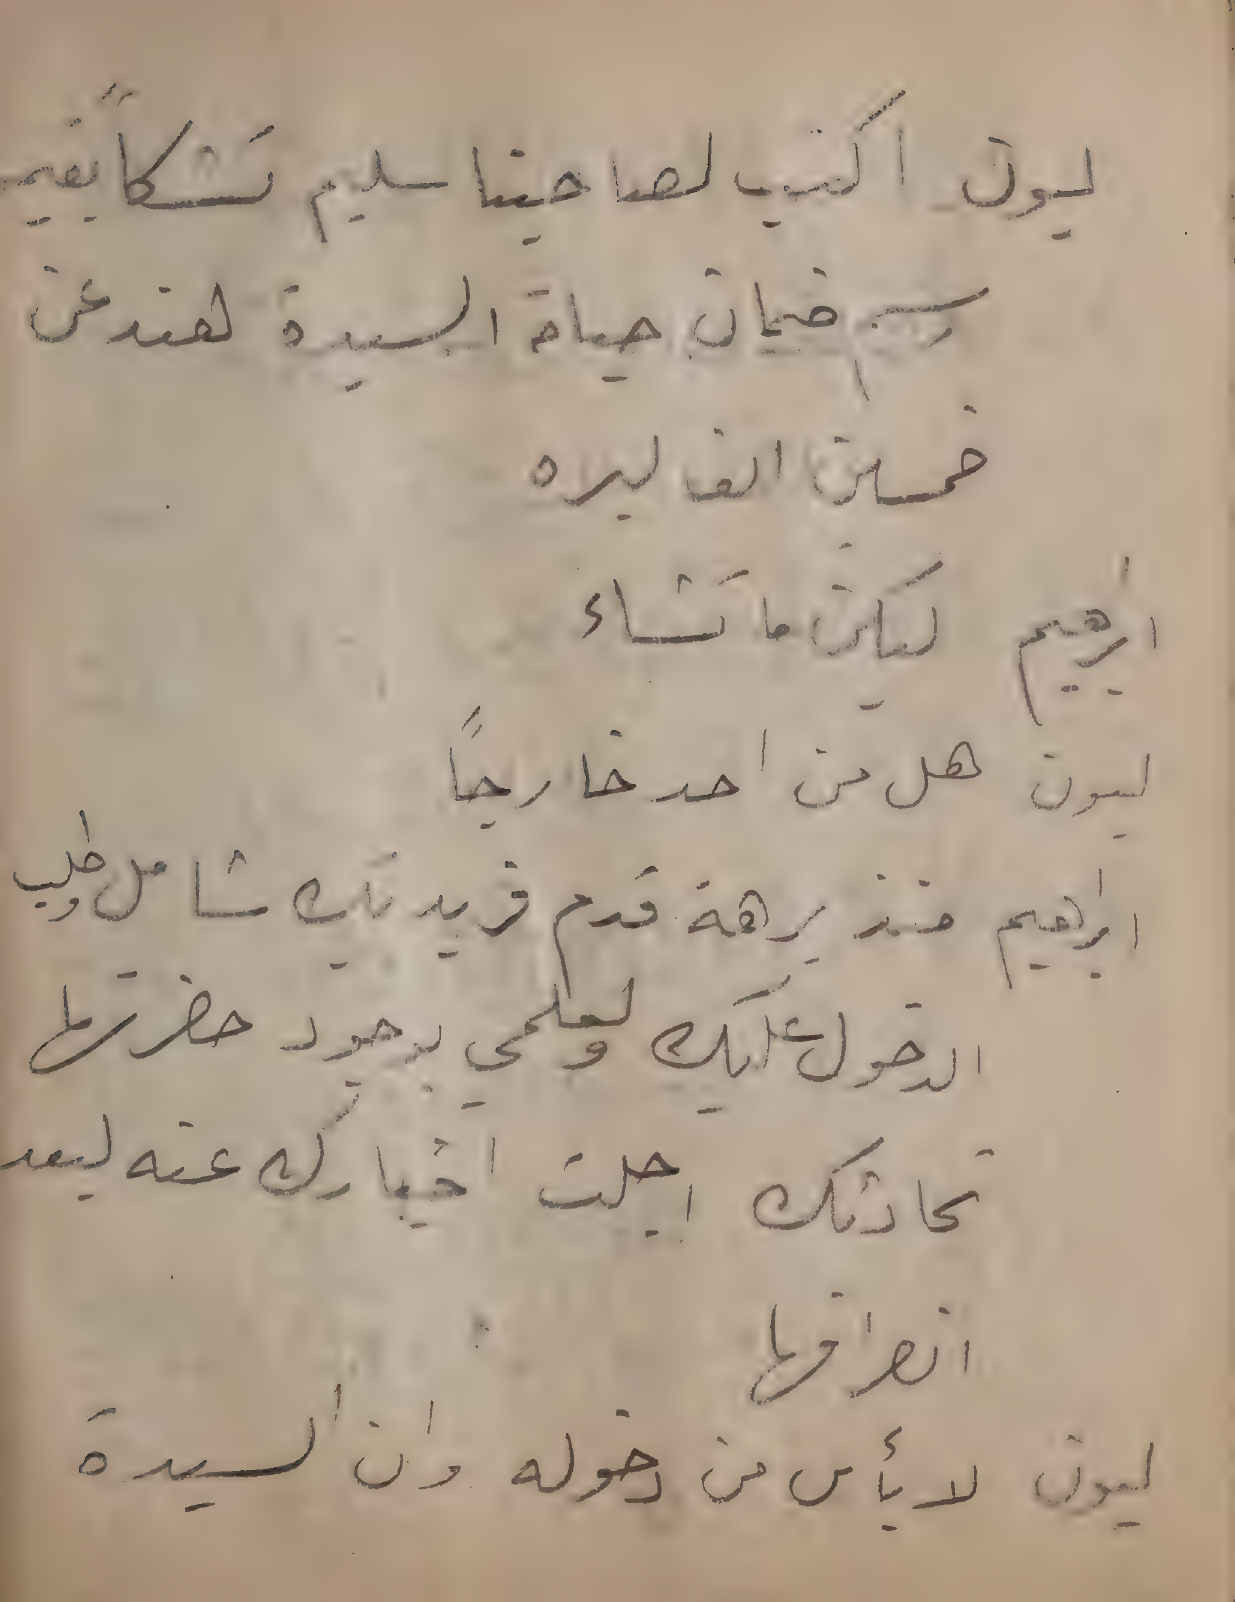 ليون اكتب لصاحبنا سليم تشكاً بقيمة
رسم ضمان حياة السيدة لهند عن
خمسين الف ليره
ابرهيم ليكن ما تشاء
ليون هل من احد خارجاً
ابرهيم منذ برهة قدم فريد بك شامل وطلب
الدخول عليك ولعلمي بوجود حضرتها
تحادثك اجلت اخبارك عنه لبعد
انصرافها
ليون لا بأس من دخوله وان السيدة